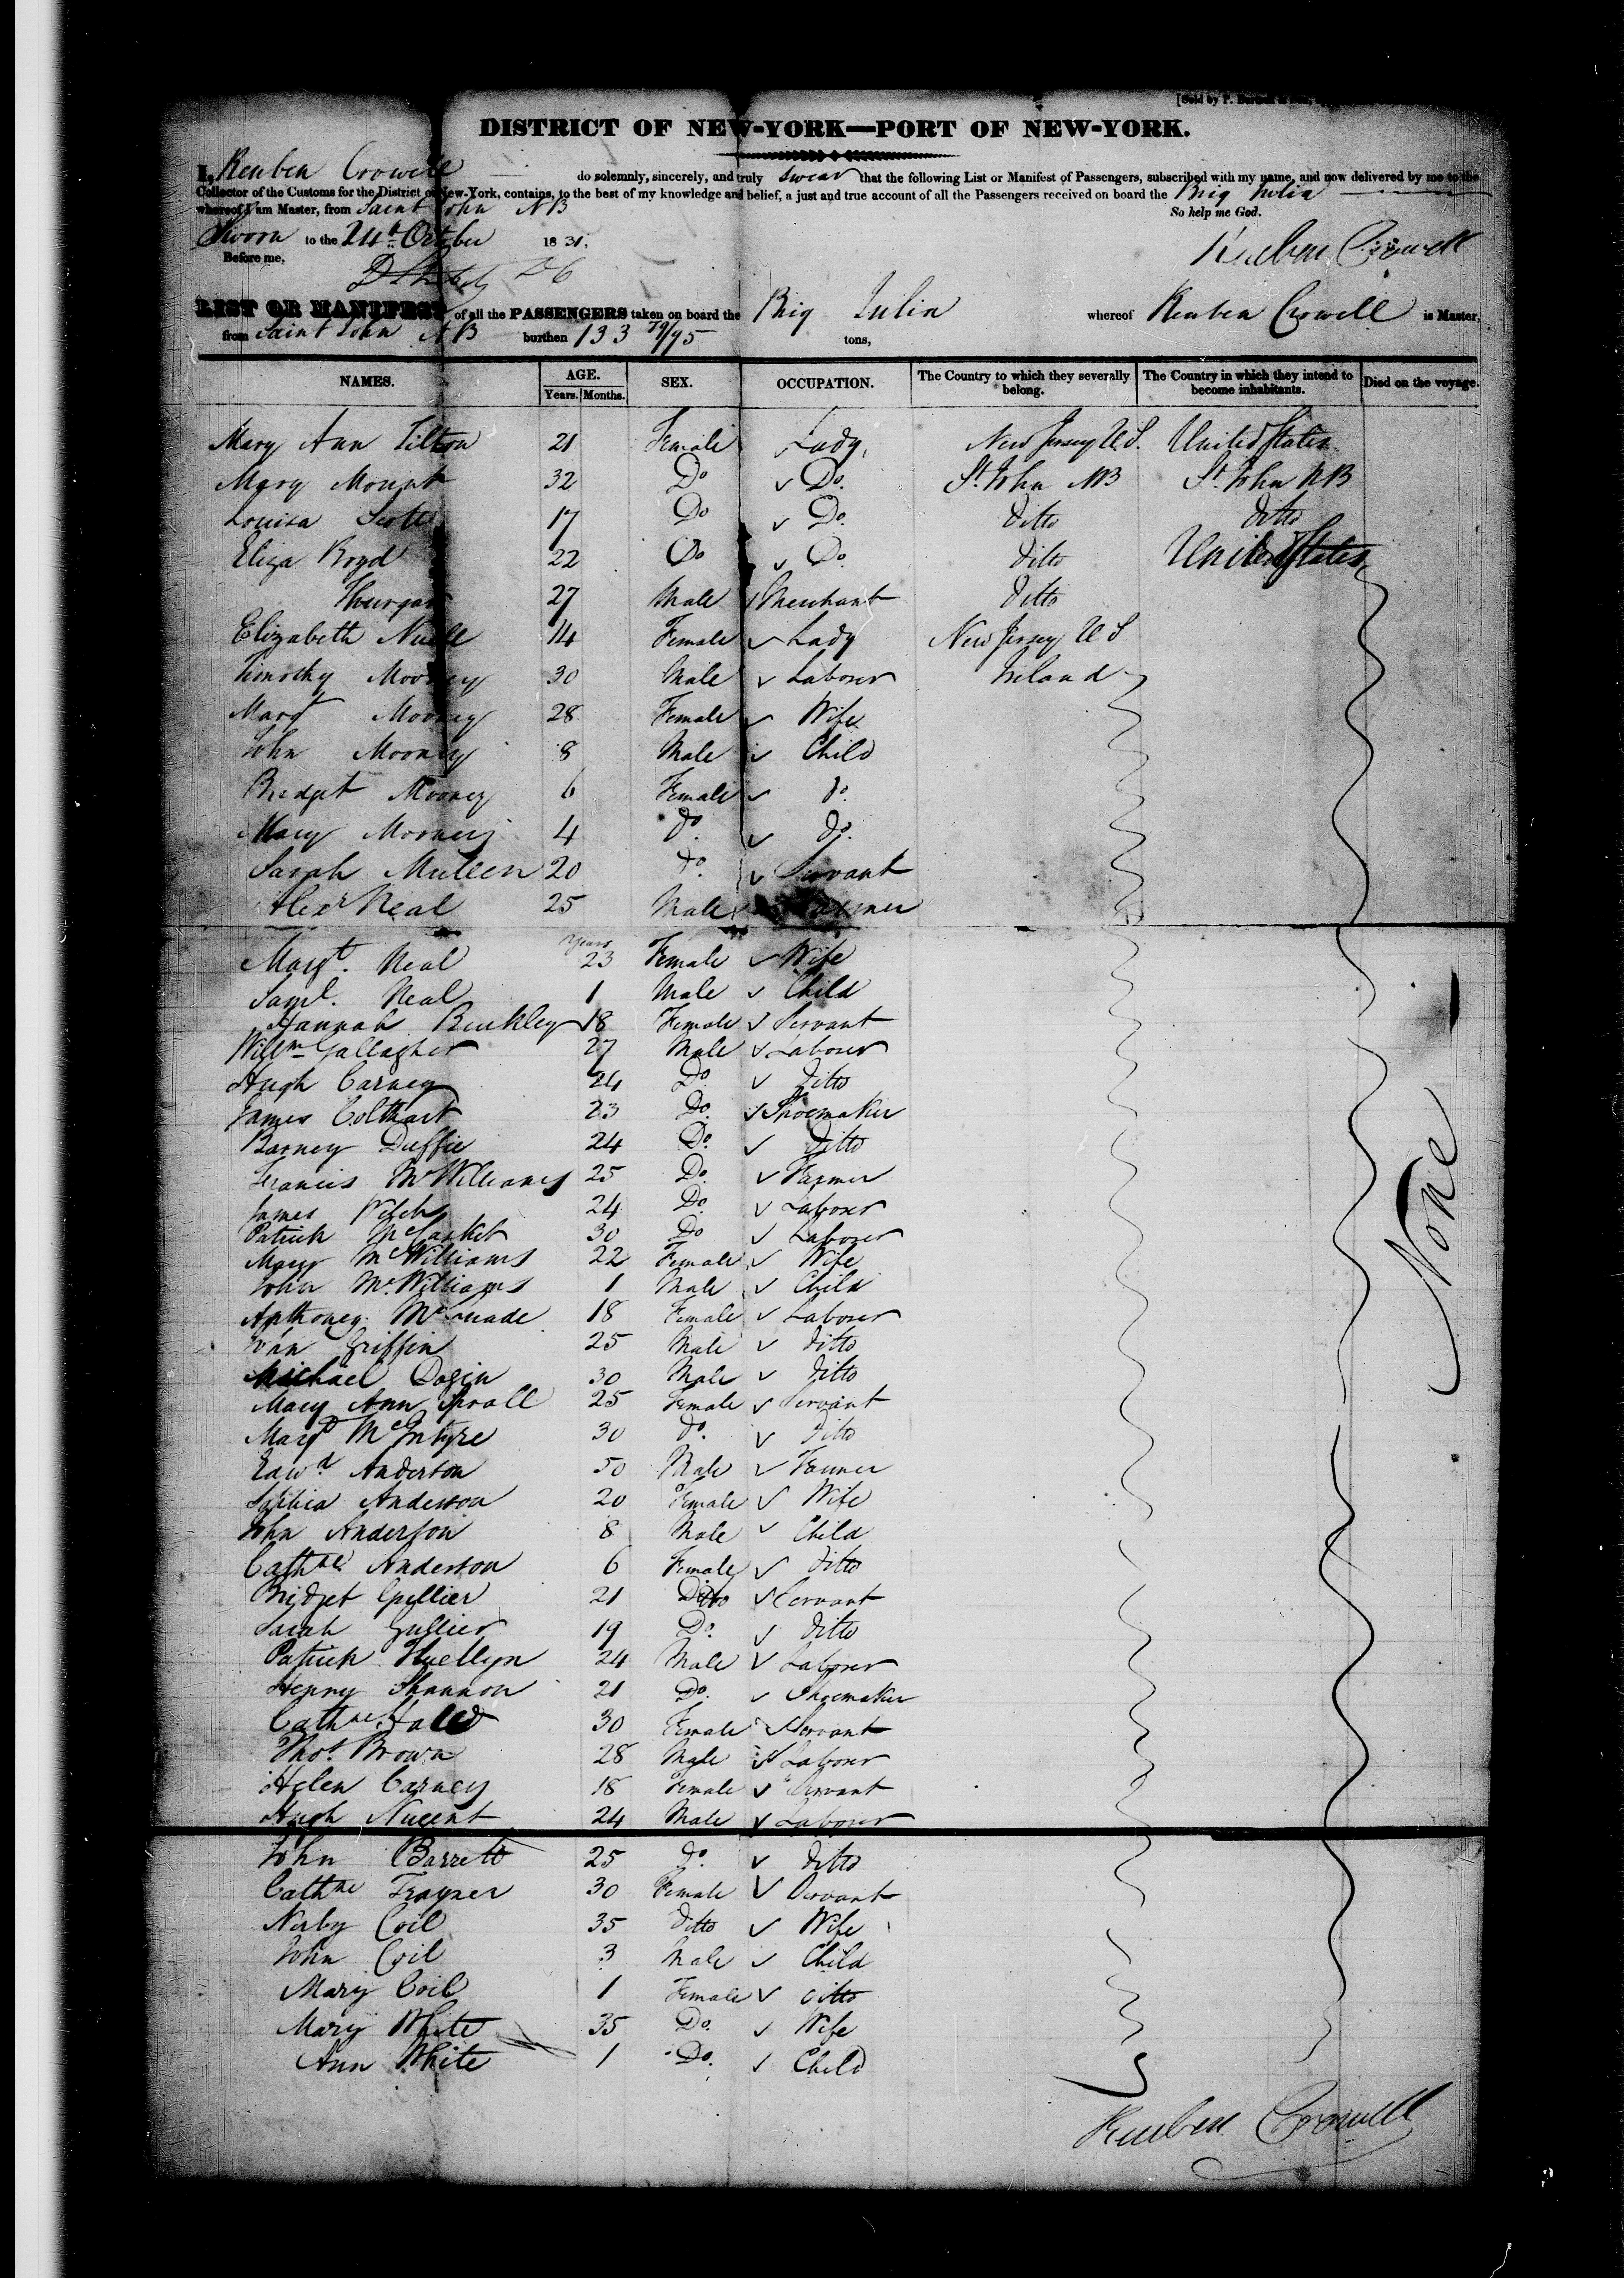 [Sold by P. Burdett
DISTRICT OF NEW-YORK—PORT OF NEW-YORK.
I, Reuben Crowell do solemnly, sincerely, and truly swear that the following List or Manifest of Passengers, subscribed with my name, and now delivered by me to the
Collector of the Customs for the District of New-York, contains, to the best of my knowledge and belief, a just and true account of all the Passengers received on board the Brig Julia
whereof I am Master, from Saint John NB So help me God.
Sworn to the 24th October 1831, Reuben Crowell
Before me,
LIST OR MANIFEST of all the PASSENGERS taken on board the Brig Julia whereof Reuben Crowell is Master,
from Saint John NB burthen 133 79/95 tons,
NAMES. AGE. Years. Months. SEX. OCCUPATION. The Country to which they severally belong. The Country in which they intend to become inhabitants. Died on the voyage.
Mary Ann Tilton 21 Female Lady New Jersey U.S. United States
Mary Mount 32 Do Do. St John NB St John NB
Louisa Scott 17 Do Do. ditto ditto
Eliza Boyd 22 Do Do. ditto United States
Thurgar 27 Male Merchant ditto
Elizabeth 14 Female Lady New Jersey U S
Timothy Mooney 30 Male Laborer Ireland
Margt Mooney 28 Female Wife
John Mooney 8 Male Child
Bridget Mooney 6 Female do.
Mary Mooney 4 do. do.
Sarah Mullen 20 do. Servant
Alexr Neal 25 Male Farmer
Margt. Neal Years 23 Female Wife
Saml. Neal 1 Male Child
Hannah Buckley 18 Female Servant
Willm Gallagher 27 Male Laborer
Hugh Carney 24 Do. ditto
James Colthart 23 Do. Shoemaker
Barney Duffie 24 Do. ditto
Francis McWilliams 25 Do. Farmer
James 24 Do. Laborer
Patrick McCasket 30 Do Laborer
Mary McWilliams 22 Female Wife
John McWilliams 1 Male Child
Anthoney McQuade 18 Female Laborer
John Griffin 25 Male ditto
Michael Dogin 30 Male ditto
Mary Ann Sproll 25 Female Servant
Margt McIntyre 30 do. ditto
Edwd. Anderson 50 Male Farmer
Sophia Anderson 20 Female Wife
John Anderson 8 Male Child
Cathne Anderson 6 Female ditto
Bridget Gullier 21 Ditto Servant
Sarah Gullier 19 Do. ditto
Patrick Huellyn 24 Male Laborer
Henny Shannon 21 Do. Shoemaker
Cathne. 30 Female Servant
Thos. Brown 28 Male Laborer
Helen Carney 18 Female Servant
Hugh Nugent 24 Male Laborer
John Barrett 25 do. ditto
Cathne Trayner 30 Female Servant
Nerby Coil 35 ditto Wife
John Coil 3 Male Child
Mary Coil 1 Female ditto
Mary White 35 Do. Wife
Ann White 1 Do. Child
None
Reuben Crowell